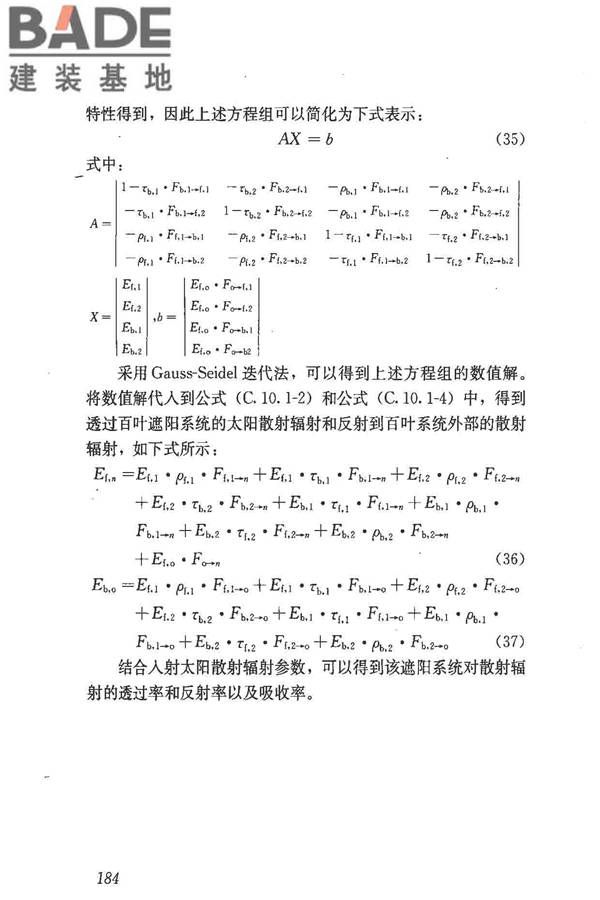 BADE
建装基地
特性得到，因此上述方程组可以简化为下式表示：
AX = b (35)
式中：
A = | 1－τb,1・Fb,1→f,1 －τb,2・Fb,2→f,1 －ρb,1・Fb,1→f,1 －ρb,2・Fb,2→f,1 |
－τb,1・Fb,1→f,2 1－τb,2・Fb,2→f,2 －ρb,1・Fb,1→f,2 －ρb,2・Fb,2→f,2
－ρf,1・Ff,1→b,1 －ρf,2・Ff,2→b,1 1－τf,1・Ff,1→b,1 －τf,2・Ff,2→b,1
－ρf,1・Ff,1→b,2 －ρf,2・Ff,2→b,2 －τf,1・Ff,1→b,2 1－τf,2・Ff,2→b,2
X = | Ef,1 | ,b = | Ef,o・Fo→f,1 |
Ef,2 Ef,o・Fo→f,2
Eb,1 Ef,o・Fo→b,1
Eb,2 Ef,o・Fo→b2
采用 Gauss-Seidel 迭代法，可以得到上述方程组的数值解。
将数值解代入到公式（C.10.1-2）和公式（C.10.1-4）中，得到
透过百叶遮阳系统的太阳散射辐射和反射到百叶系统外部的散射
辐射，如下式所示：
Ef,n =Ef,1・ρf,1・Ff,1→n＋Ef,1・τb,1・Fb,1→n＋Ef,2・ρf,2・Ff,2→n
＋Ef,2・τb,2・Fb,2→n＋Eb,1・τf,1・Ff,1→n＋Eb,1・ρb,1・
Fb,1→n＋Eb,2・τf,2・Ff,2→n＋Eb,2・ρb,2・Fb,2→n
＋Ef,o・Fo→n (36)
Eb,o =Ef,1・ρf,1・Ff,1→o＋Ef,1・τb,1・Fb,1→o＋Ef,2・ρf,2・Ff,2→o
＋Ef,2・τb,2・Fb,2→o＋Eb,1・τf,1・Ff,1→o＋Eb,1・ρb,1・
Fb,1→o＋Eb,2・τf,2・Ff,2→o＋Eb,2・ρb,2・Fb,2→o (37)
结合入射太阳散射辐射参数，可以得到该遮阳系统对散射辐
射的透过率和反射率以及吸收率。
184